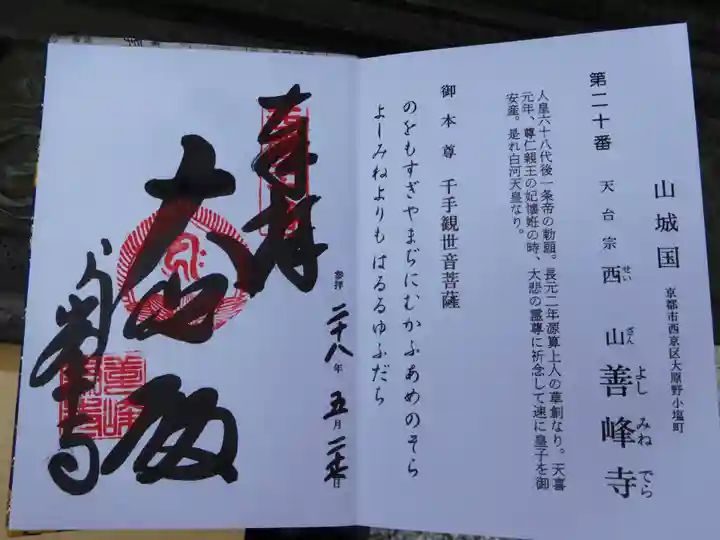 山城国 京都市西京区大原野小塩町
第二十番 天台宗 西山 善峰寺
せい ざん よし みね でら
人皇六十八代後一条帝の勅願。長元二年源算上人の草創なり。天喜
元年、尊仁親王の妃懐妊の時、大悲の霊尊に祈念して速に皇子を御
安産。是れ白河天皇なり。
御本尊 千手観世音菩薩
のをもすぎやまぢにむかふあめのそら
よしみねよりもはるるゆふだち
奉拝
参拝 二十八年 五月 二十七日
大悲殿
善峯寺